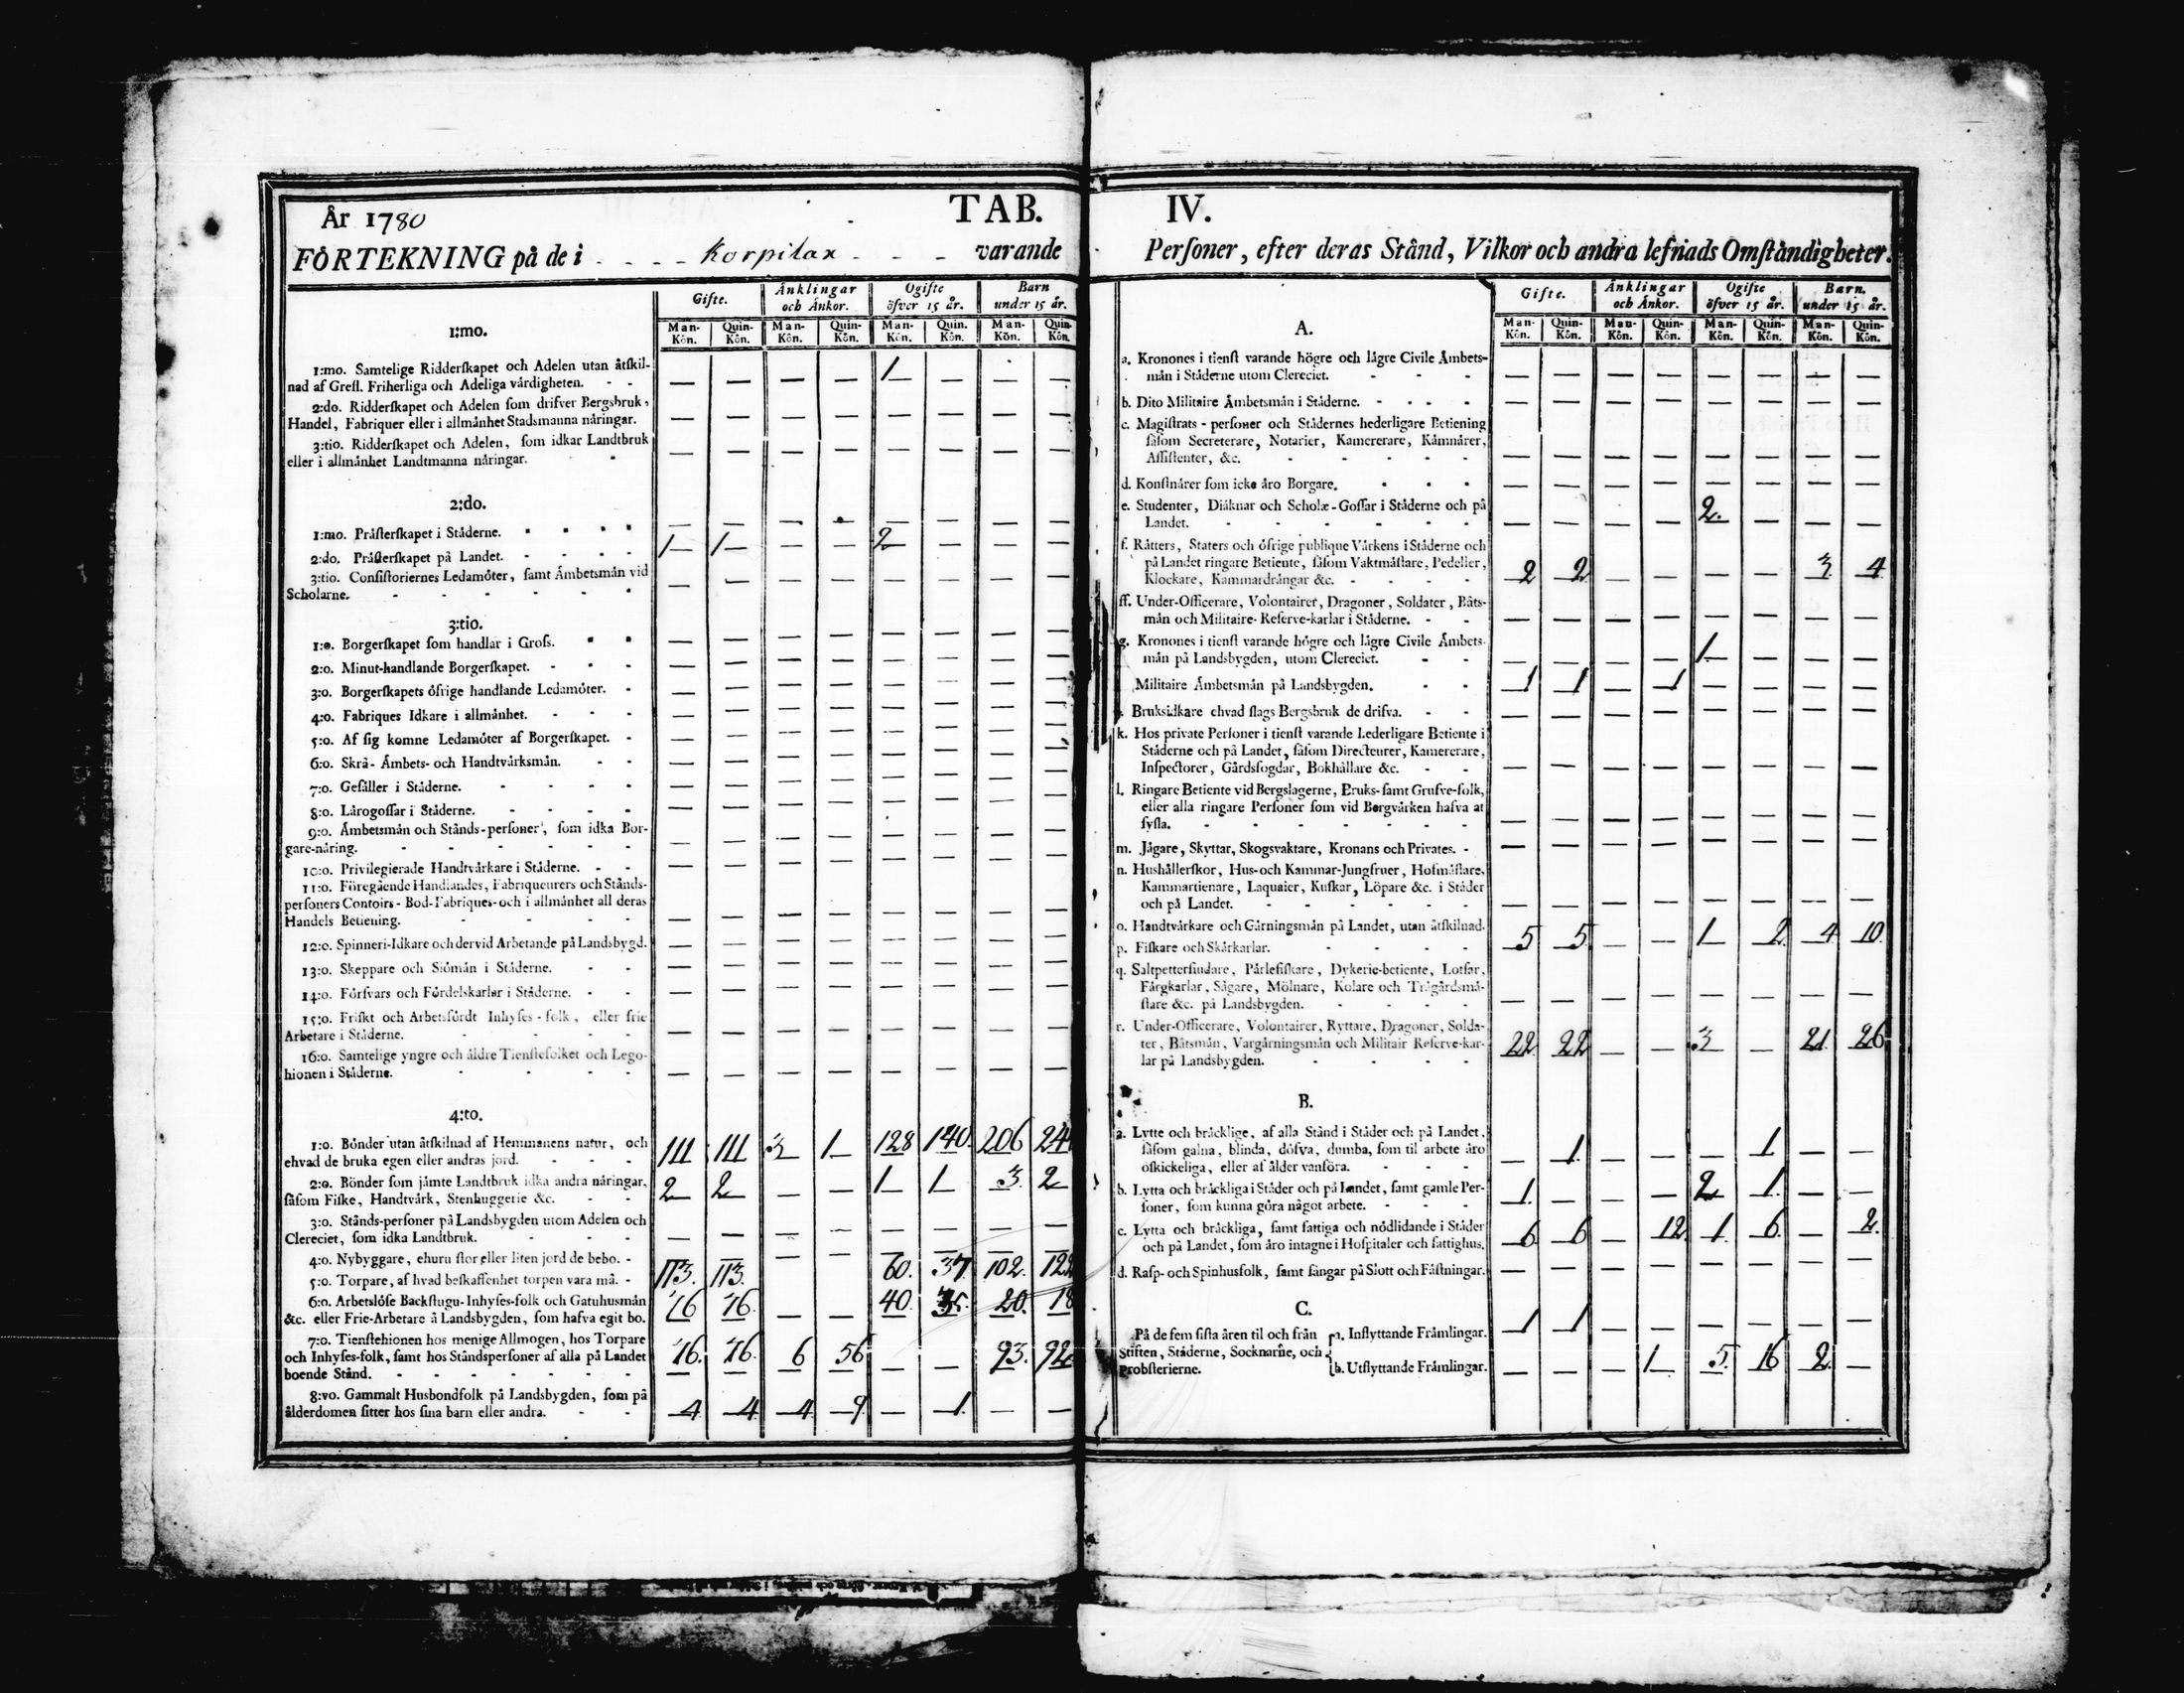 År 1780
TAB.
FÖRTEKNING på de i - - - - Korpilax - - - varande
Gifte.
Änklingar och Änkor.
Ogifte öfver 15 år.
Barn under 15 år.
Man-Kön. Quin-Kön. Man-Kön. Quin-Kön. Man-Kön. Quin-Kön. Man-Kön. Quin-Kön.
1:mo.
1:mo. Samtelige Ridderskapet och Adelen utan åtskil-
nad af Grefl. Friherliga och Adeliga värdigheten. - - — — — — 1 — — —
2:do. Ridderskapet och Adelen som drifver Bergsbruk,
Handel, Fabriquer eller i allmänhet Stadsmanna näringar. — — — — — — — —
3:tio. Ridderskapet och Adelen, som idkar Landtbruk
eller i allmänhet Landtmanna näringar. - — — — — — — — —
2:do.
1:mo. Prästerskapet i Städerne. - - - - — — — — — — — —
2:do. Prästerskapet på Landet. - - - - 1 1 — — 2 — — —
3:tio. Consistoriernes Ledamöter, samt Ämbetsmän vid
Scholarne. - - - - - - — — — — — — — —
3:tio.
1:o. Borgerskapet som handlar i Gross. - - — — — — — — — —
2:o. Minut-handlande Borgerskapet. - - - — — — — — — — —
3:o. Borgerskapets öfrige handlande Ledamöter. - — — — — — — — —
4:o. Fabriques Idkare i allmänhet. - - - — — — — — — — —
5:o. Af sig komne Ledamöter af Borgerskapet. - — — — — — — — —
6:o. Skrå- Ämbets- och Handtvärksmän. - - — — — — — — — —
7:o. Gesäller i Städerne. - - - - — — — — — — — —
8:o. Lärogossar i Städerne. - - - - — — — — — — — —
9:o. Ämbetsmän och Stånds-personer, som idka Bor-
gare-näring. - - - - - - — — — — — — — —
10:o. Privilegierade Handtvärkare i Städerne. - - — — — — — — — —
11:o. Föregående Handlandes, Fabriqueurers och Stånds-
personers Contoirs - Bod-Fabriques- och i allmänhet all deras
Handels Betiening. - - - - — — — — — — — —
12:o. Spinneri-Idkare och dervid Arbetande på Landsbygd. — — — — — — — —
13:o. Skeppare och Siömän i Städerne. - - — — — — — — — —
14:o. Försvars och Fördelskarlar i Städerne. - - — — — — — — — —
15:o. Friskt och Arbetsfördt Inhyses - folk, eller frie
Arbetare i Städerne. - - - - — — — — — — — —
16:o. Samtelige yngre och äldre Tienstefolket och Lego-
hionen i Städerne. - - - - — — — — — — — —
4:to.
1:o. Bönder utan åtskilnad af Hemmanens natur, och
ehvad de bruka egen eller andras jord. - - - 111 111 3 1 128 140. 206
2:o. Bönder som jämte Landtbruk idka andra näringar,
såsom Fiske, Handtvärk, Stenhuggerie &c. - - 2 2 — — 1 1 3. 2
3:o. Stånds-personer på Landsbygden utom Adelen och
Clereciet, som idka Landtbruk. - - - — — — — — — — —
4:o. Nybyggare, ehuru stor eller liten jord de bebo. - — — — — — — — —
5:o. Torpare, af hvad beskaffenhet torpen vara må. - 113. 113. 60. 37 102. 122
6:o. Arbetslöse Backstugu-Inhyses-folk och Gatuhusmän
&c. eller Frie-Arbetare å Landsbygden, som hafva egit bo. 76 76. — — 40. 20. 18
7:o. Tienstehionen hos menige Allmogen, hos Torpare
och Inhyses-folk, samt hos Ståndspersoner af alla på Landet
boende Stånd. - - - - - - 76. 76. 6 56 — — 93. 92
8:vo. Gammalt Husbondfolk på Landsbygden, som på
ålderdomen sitter hos sina barn eller andra. - - 4 4 4 9 — 1 — —
IV.
Personer, efter deras Stånd, Vilkor och andra lefnads Omständigheter.
Gifte.
Änklingar och Änkor.
Ogifte öfver 15 år.
Barn. under 15 år.
Man-Kön. Quin-Kön. Man-Kön. Quin-Kön. Man-Kön. Quin-Kön. Man-Kön. Quin-Kön.
A.
a. Kronones i tienst varande högre och lägre Civile Ämbets-
män i Städerne utom Clereciet. - - - — — — — — — — —
b. Dito Militaire Ämbetsmän i Städerne. - - - - — — — — — — — —
c. Magistrats - personer och Städernes hederligare Betiening
såsom Secreterare, Notarier, Kamererare, Kämnärer,
Assistenter, &c. - - - - - — — — — — — — —
d. Konstnärer som icke äro Borgare. - - - — — — — — — — —
e. Studenter, Diäknar och Scholæ-Gossar i Städerne och på
Landet. - - - - - - — — — — 2. — — —
f. Rätters, Staters och öfrige publique Värkens i Städerne och
på Landet ringare Betiente, såsom Vaktmästare, Pedeller,
Klockare, Kammardrängar &c. - - - - 2 2 — — — — 3. 4
ff. Under-Officerare, Volontairer, Dragoner, Soldater, Båts-
män och Militaire- Reserve-karlar i Städerne. - - — — — — — — — —
g. Kronones i tienst varande högre och lägre Civile Ämbets-
män på Landsbygden, utom Clereciet. - - — — — — 1 — — —
Militaire Ämbetsmän på Landsbygden. - - 1 1 — 1 — — — —
Bruksidkare ehvad slags Bergsbruk de drifva. - - — — — — — — — —
k. Hos private Personer i tienst varande hederligare Betiente i
Städerne och på Landet, såsom Directeurer, Kamererare,
Inspectorer, Gårdsfogdar, Bokhållare &c. - - — — — — — — — —
l. Ringare Betiente vid Bergslagerne, Bruks- samt Grufve-folk,
eller alla ringare Personer som vid Bergvärken hafva at
sysla. - - - - - - - — — — — — — — —
m. Jägare, Skyttar, Skogsvaktare, Kronans och Privates. - — — — — — — — —
n. Hushållerskor, Hus-och Kammar-Jungfruer, Hofmästare,
Kammartienare, Laquaier, Kuskar, Löpare &c. i Städer
och på Landet. - - - - - — — — — — — — —
o. Handtvärkare och Gärningsmän på Landet, utan åtskilnad. 5 5 — — 1 2 4 10.
p. Fiskare och Skärkarlar. - - - -
q. Saltpettersiudare, Pärlefiskare, Dykerie-betiente, Lotsar,
Färgkarlar, Sågare, Mölnare, Kolare och Trägårdsmä-
stare &c. på Landsbygden. - - - — — — — — — — —
r. Under-Officerare, Volontairer, Ryttare, Dragoner, Solda-
ter, Båtsmän, Vargärningsmän och Militair Reserve-kar-
lar på Landsbygden. - - - - 22 22 — — 3 — 21. 26
B.
a. Lytte och bräcklige, af alla Stånd i Städer och på Landet,
såsom galna, blinda, döfva, dumba, som til arbete äro
oskickeliga, eller af ålder vanföra. - - - — 1. — — — 1. — —
b. Lytta och bräckliga i Städer och på Landet, samt gamle Per-
soner, som kunna göra något arbete. - - - 1. — — — 2 1. — —
c. Lytta och bräckliga, samt fattiga och nödlidande i Städer
och på Landet, som äro intagne i Hospitaler och fattighus. 6 6 — 12. 1. 6. — 2.
d. Rasp- och Spinhusfolk, samt fångar på Slott och Fästningar. — — — — — — — —
C.
På de fem sista åren til och från
Stiften, Städerne, Socknarne, och
Probsterierne.
a. Inflyttande Främlingar. 1 1 — — — — — —
b. Utflyttande Främlingar. — — — 1 5. 16 2. —